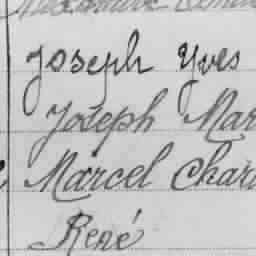 Joseph Yves
Joseph Mar
Marcel Char
René